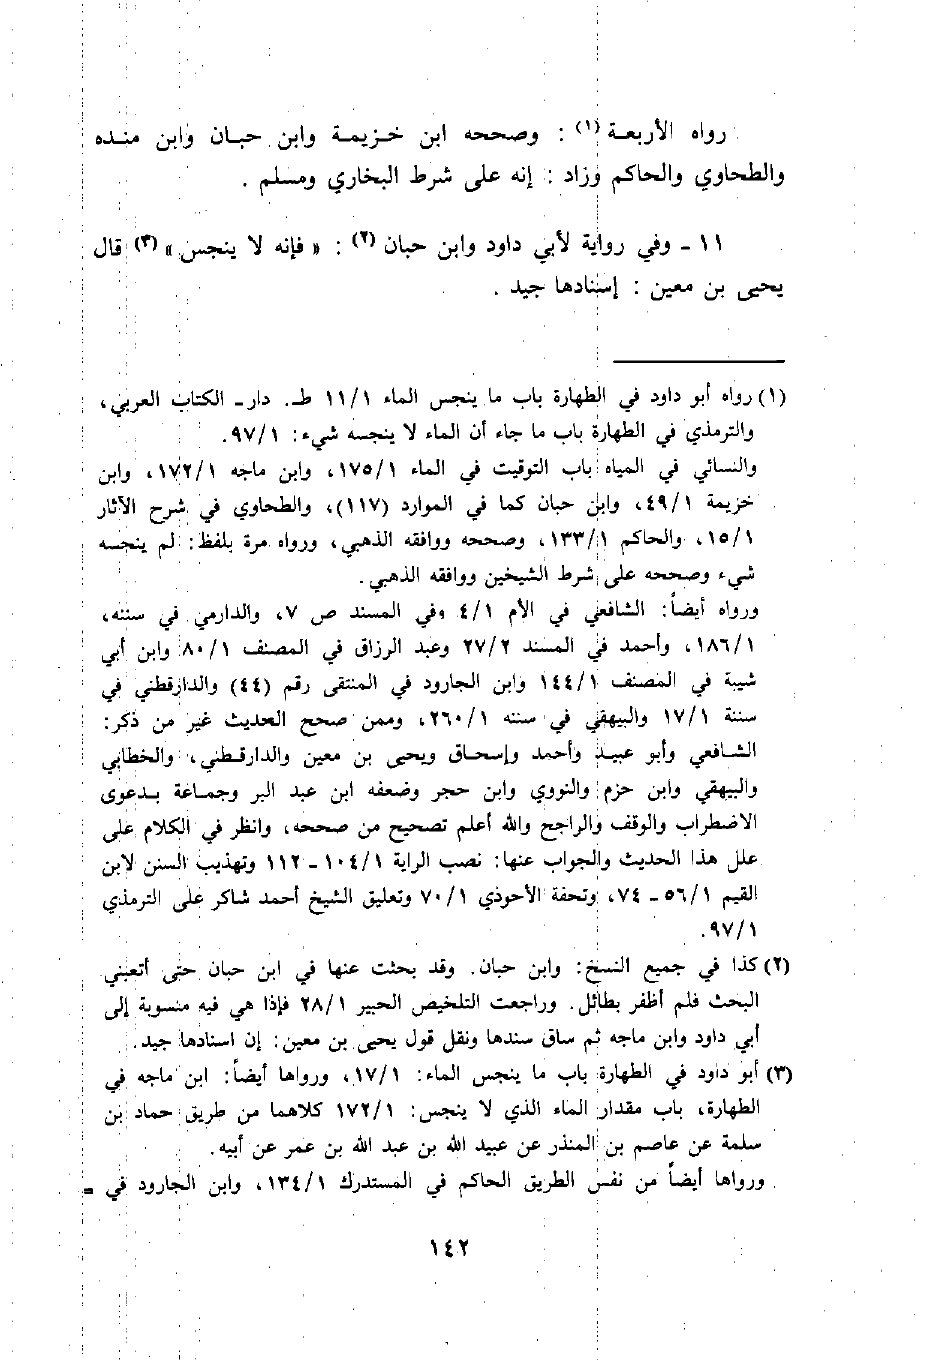 رواه الأربعة (١) : وصححه ابن خزيمة وابن حبان وابن منده
والطحاوي والحاكم وزاد : إنه على شرط البخاري ومسلم .
١١ ـ وفي رواية لأبي داود وابن حبان (٢) : « فإنه لا ينجس » (٣) قال
يحيى بن معين : إسنادها جيد .
(١) رواه أبو داود في الطهارة باب ما ينجس الماء ١١/١ ط. دار ـ الكتاب العربي،
والترمذي في الطهارة باب ما جاء أن الماء لا ينجسه شيء: ٩٧/١.
والنسائي في المياه باب التوقيت في الماء ١٧٥/١، وابن ماجه ١٧٢/١، وابن
خزيمة ٤٩/١، وابن حبان كما في الموارد (١١٧)، والطحاوي في شرح الآثار
١٥/١، والحاكم ١٣٣/١، وصححه ووافقه الذهبي، ورواه مرة بلفظ: لم ينجسه
شيء وصححه على شرط الشيخين ووافقه الذهبي.
ورواه أيضاً: الشافعي في الأم ٤/١ وفي المسند ص ٧، والدارمي في سننه،
١٨٦/١، وأحمد في المسند ٢٧/٢ وعبد الرزاق في المصنف ٨٠/١ وابن أبي
شيبة في المصنف ١٤٤/١ وابن الجارود في المنتقى رقم (٤٤) والدارقطني في
سننة ١٧/١ والبيهقي في سننه ٢٦٠/١، وممن صحح الحديث غير من ذكر:
الشافعي وأبو عبيد وأحمد وإسحاق ويحيى بن معين والدارقطني، والخطابي
والبيهقي وابن حزم والنووي وابن حجر وضعفه ابن عبد البر وجماعة بدعوى
الاضطراب والوقف والراجح والله أعلم تصحيح من صححه، وانظر في الكلام على
علل هذا الحديث والجواب عنها: نصب الراية ١٠٤/١ ـ ١١٢ وتهذيب السنن لابن
القيم ٥٦/١ ـ ٧٤، وتحفة الأحوذي ٧٠/١ وتعليق الشيخ أحمد شاكر على الترمذي
٩٧/١.
(٢) كذا في جميع النسخ: وابن حبان. وقد بحثت عنها في ابن حبان حتى أتعبني
البحث فلم أظفر بطائل. وراجعت التلخيص الحبير ٢٨/١ فإذا هي فيه منسوبة إلى
أبي داود وابن ماجه ثم ساق سندها ونقل قول يحيى بن معين: إن اسنادها جيد.
(٣) أبو داود في الطهارة باب ما ينجس الماء: ١٧/١، ورواها أيضاً: ابن ماجه في
الطهارة، باب مقدار الماء الذي لا ينجس: ١٧٢/١ كلاهما من طريق حماد بن
سلمة عن عاصم بن المنذر عن عبيد الله بن عبد الله بن عمر عن أبيه.
ورواها أيضاً من نفس الطريق الحاكم في المستدرك ١٣٤/١، وابن الجارود في =
١٤٢